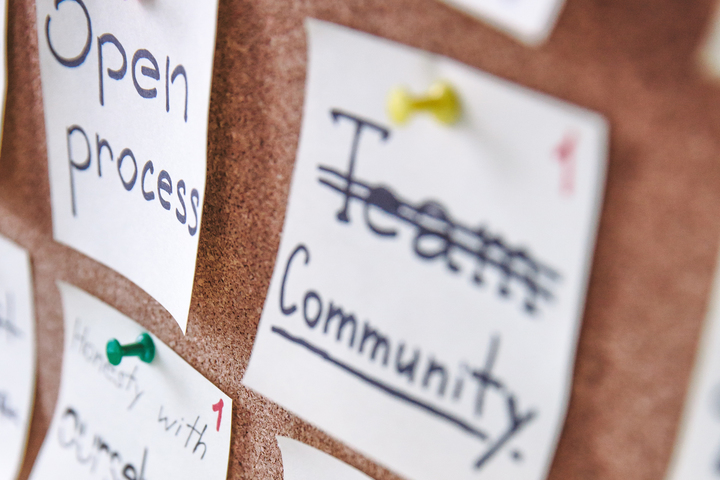 Open
process
1
Team
Community.
Honesty with
1